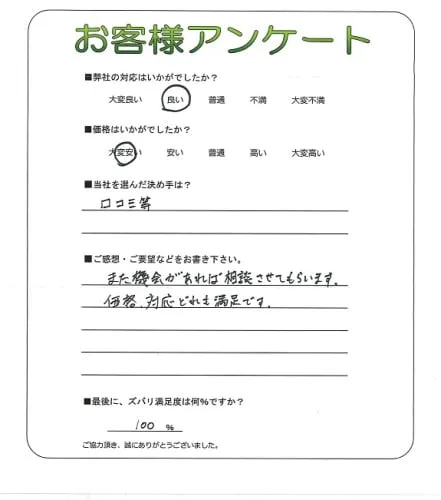 お客様アンケート
■弊社の対応はいかがでしたか?
大変良い 良い 普通 不満 大変不満
■価格はいかがでしたか?
大変安い 安い 普通 高い 大変高い
■当社を選んだ決め手は?
口コミ等
■ご感想・ご要望などをお書き下さい。
また機会があれば相談させてもらいます。
価格、対応どれも満足です。
■最後に、ズバリ満足度は何%ですか?
100 %
ご協力頂き、誠にありがとうございました。